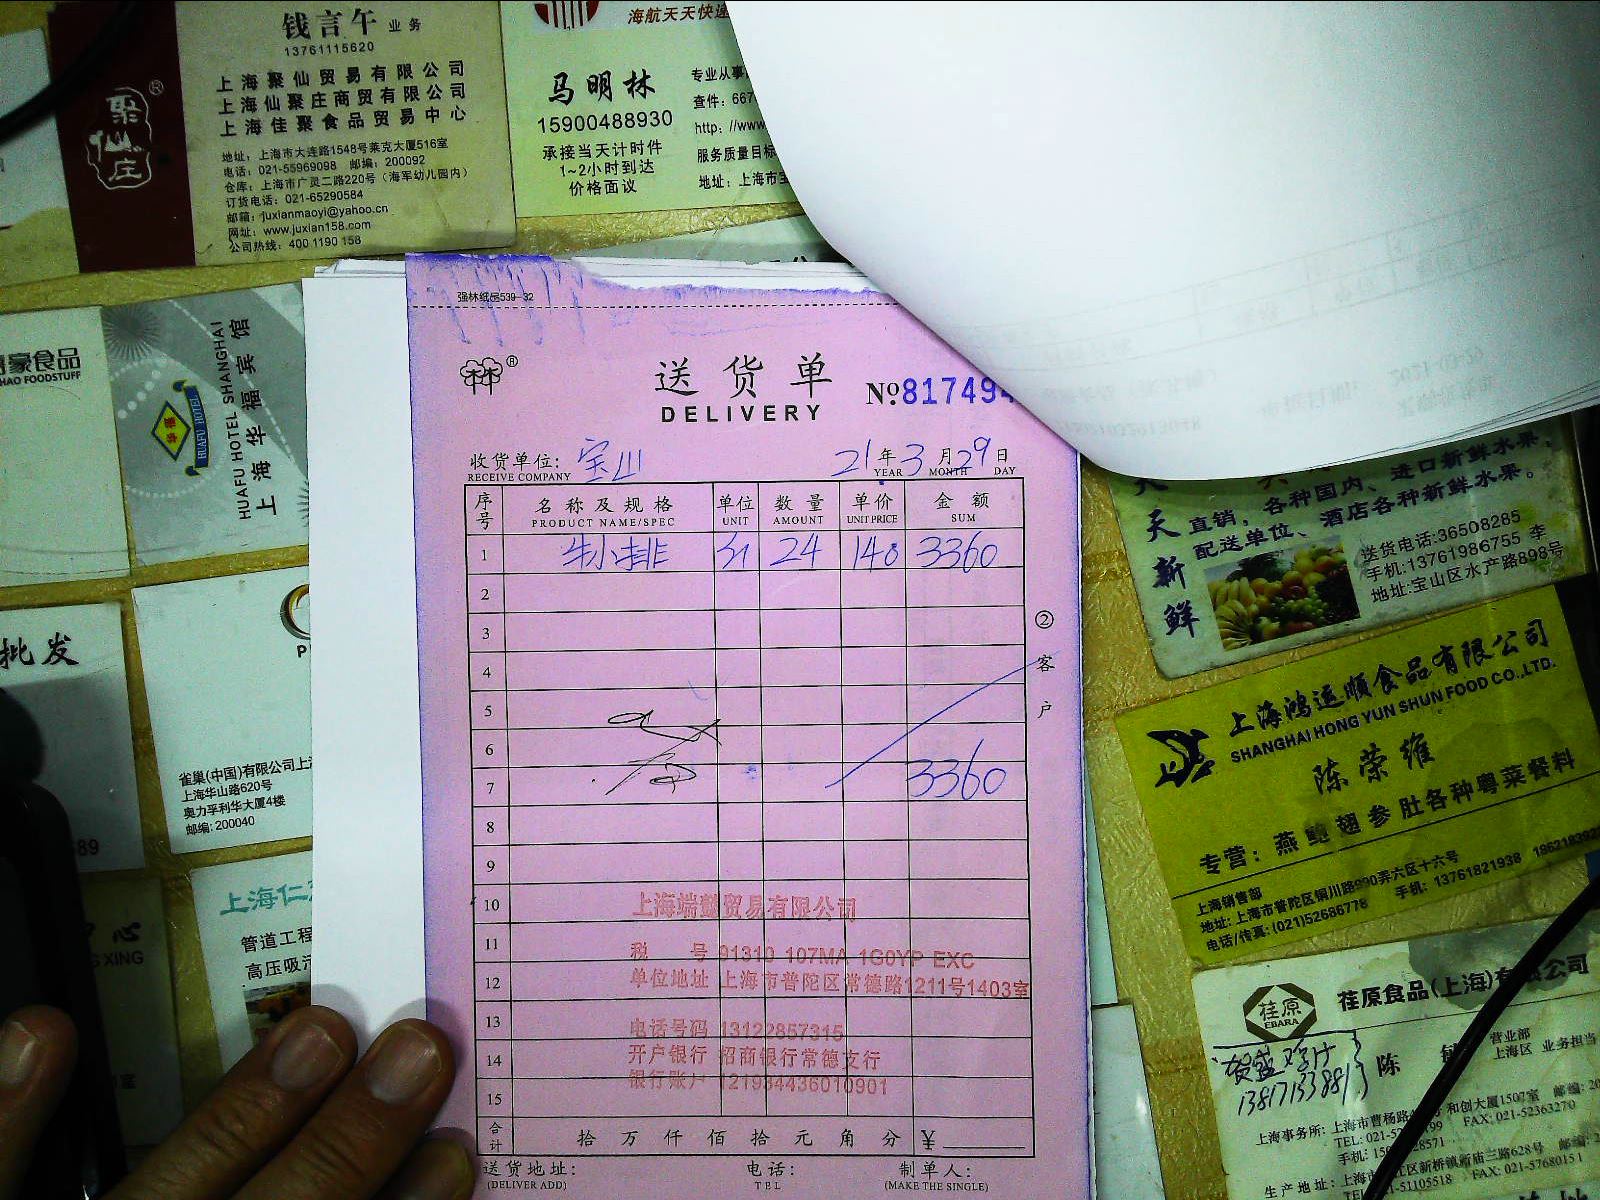 钱言午 业务
13761115620
上海聚仙贸易有限公司
上海仙聚庄商贸有限公司
上海佳聚食品贸易中心
聚仙庄®
地址：上海市大连路1548号莱克大厦516室
电话：021-55969098 邮编：200092
仓库：上海市广灵二路220号（海军幼儿园内）
订货电话：021-65290584
邮箱：juxianmaoyi@yahoo.cn
网址：www.juxian158.com
公司热线：400 1190 158
海航天天快递
马明林
15900488930
承接当天计时件
1~2小时到达
价格面议
专业从事
查件：667
http://www
服务质量目标
地址：上海市宝
豪食品
HAO FOODSTUFF
HUAFU HOTEL
HUAFU HOTEL SHANGHAI
上海华福宾馆
批发
雀巢(中国)有限公司上海
上海华山路620号
奥力孚利华大厦4楼
邮编: 200040
89
心
XING
上海仁
管道工程
高压吸污
强林纸品539-32
林®
送货单
DELIVERY
No 817494
收货单位: 宝山 21年3月29日
RECEIVE COMPANY YEAR MONTH DAY
序号 名称及规格 单位 数量 单价 金额
PRODUCT NAME/SPEC UNIT AMOUNT UNIT PRICE SUM
1 24 140 3360
2
3
4
5
6
7 3360
8
9
10
11
12
13
14
15
②客户
上海端懿贸易有限公司
税 号 91310 107MA 1G0YP EXC
单位地址 上海市普陀区常德路1211号1403室
电话号码 13122857315
开户银行 招商银行常德支行
银行账户 121934436010901
合计 拾万仟佰拾元角分 ¥
送货地址: 电话: 制单人:
(DELIVER ADD) TEL (MAKE THE SINGLE)
天天新鲜
直销，各种国内、进口新鲜水果，
配送单位、酒店各种新鲜水果。
送货电话:36508285
手机:13761986755 李
地址:宝山区水产路898号
上海鸿运顺食品有限公司
SHANGHAI HONG YUN SHUN FOOD CO.,LTD.
陈荣维
专营：燕鲍翅参肚各种粤菜餐料
上海销售部
地址: 上海市普陀区铜川路990弄六区十六号
电话/传真: (021)52686778 手机: 13761821938
荏原
EBARA
荏原食品(上海)有限公司
营业部
上海区 业务担当
陈
13817133881
上海事务所: 上海市曹杨路 号 和创大厦1507室 邮编: 20
TEL: 021-52 199 FAX: 021-52363270
手机: 15 28571
生产地址: 上海 江区新桥镇新庙三路628号 邮编: 2
TEL: 021-51105518 FAX: 021-57680151